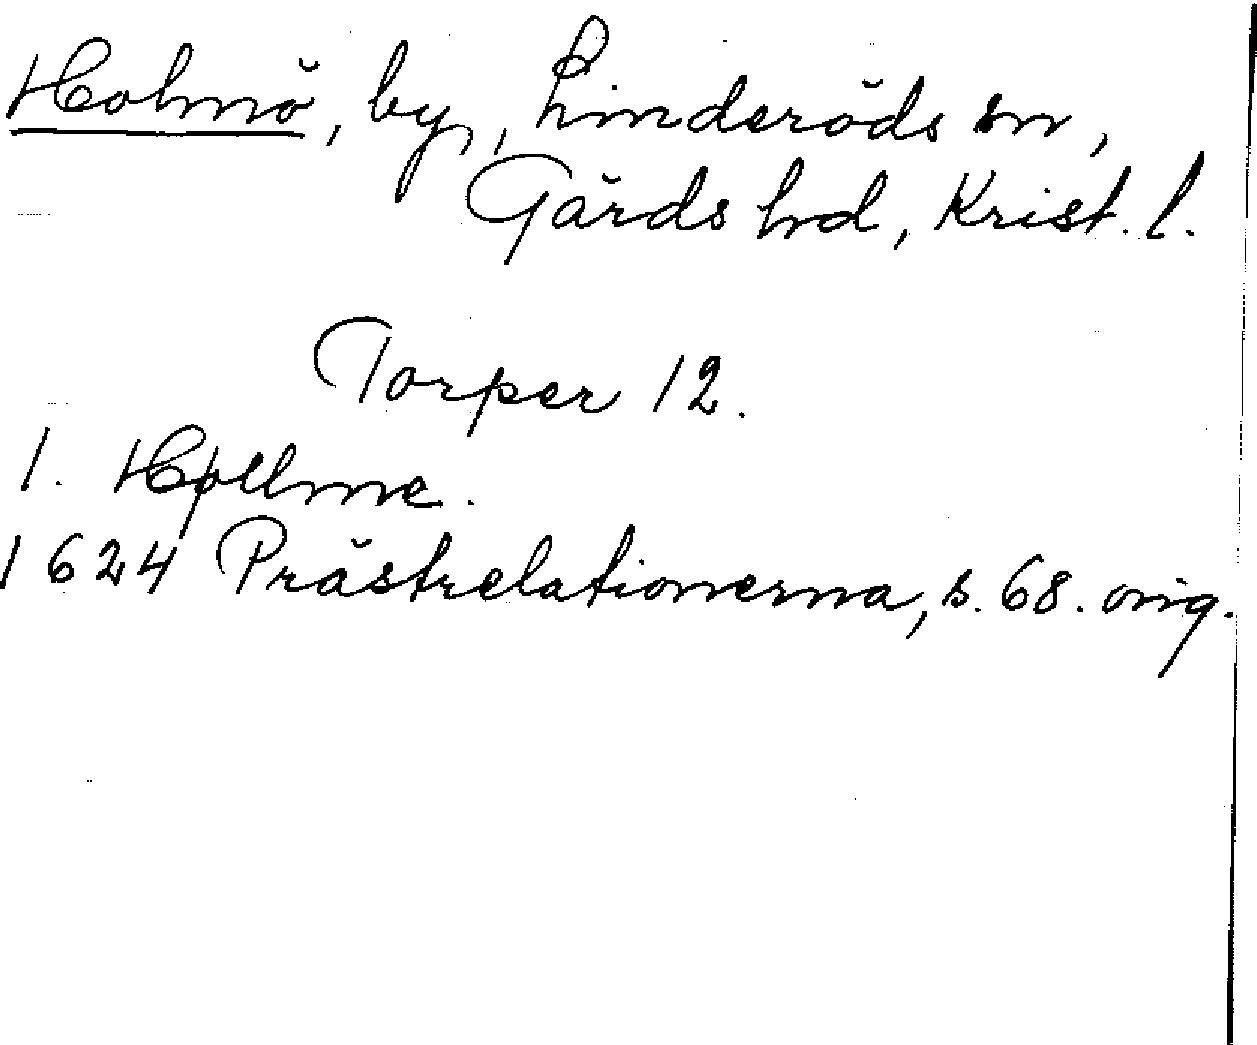 Holmö, by, Linderöds sn,
Gärds hd, Krist. l.
Torper 12.
1. Høllme.
1624 Prästrelationerna, s. 68. orig.